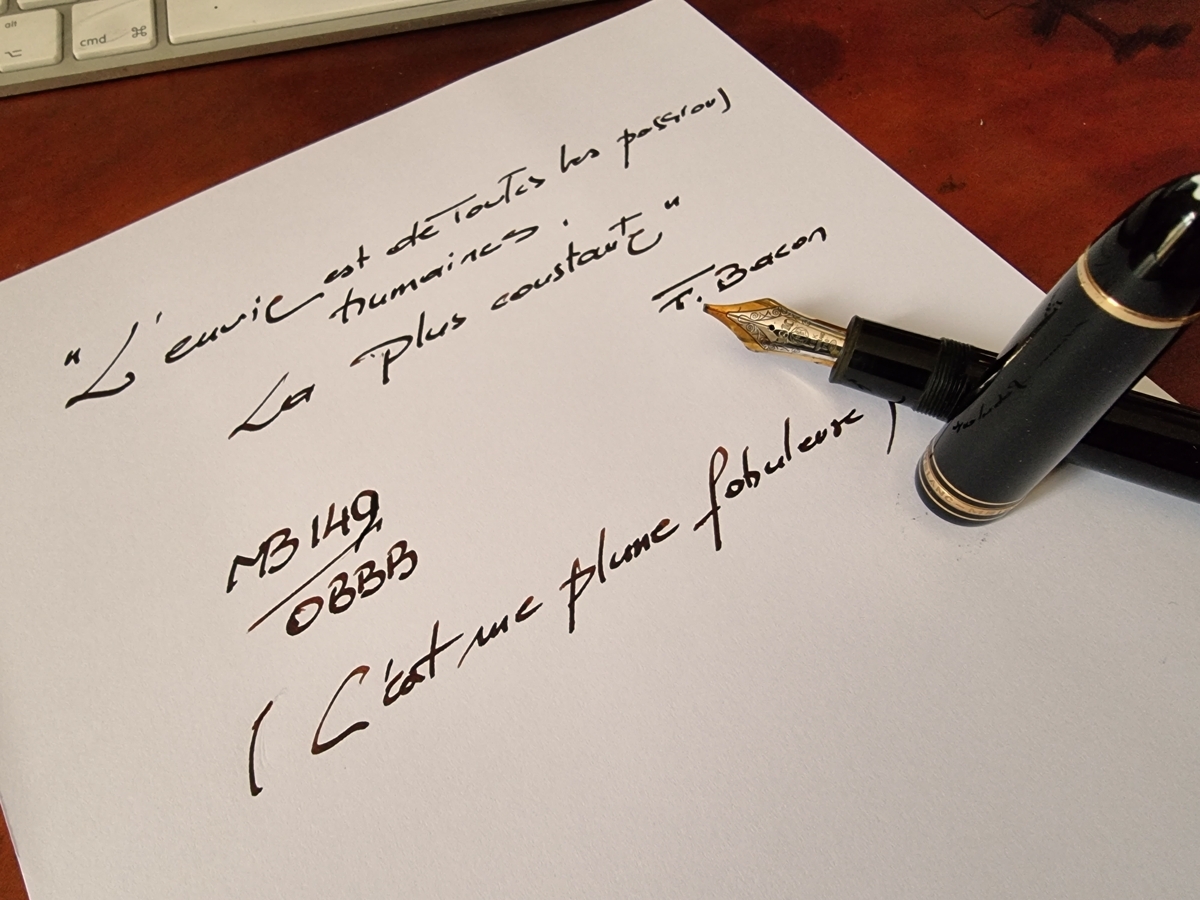 alt
⌥
cmd ⌘
"L'envie est de toutes les passions
humaines.
La plus constante"
F. Bacon
MB 149
OBBB
( C'est une plume fabuleuse )